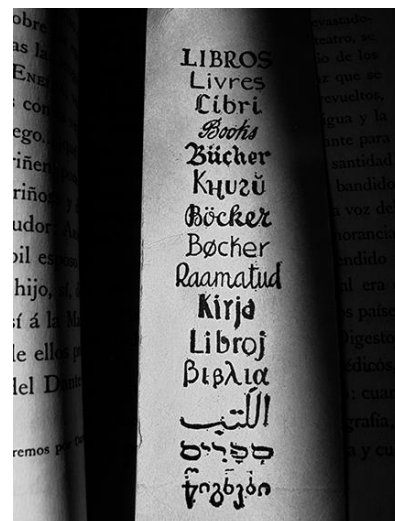 obre
as la
ENE
con
ego.
riñen
riño
udor:
esposo
hijo, sí,
sí á la
le ellos
del Dante
remos por
LIBROS
Livres
Libri
Books
Bücher
Книгй
Böcker
Bøcker
Raamatud
Kirja
Libroj
Βιβλια
الكتب
ספרים
evastado-
teatro, su
io de los
z que se
revueltos,
igua y la
ante para
santidad
bandido
a voz de
norancia
endido
al era
s países
Digesto
édicos,
: cuan
grafía,
a y cu